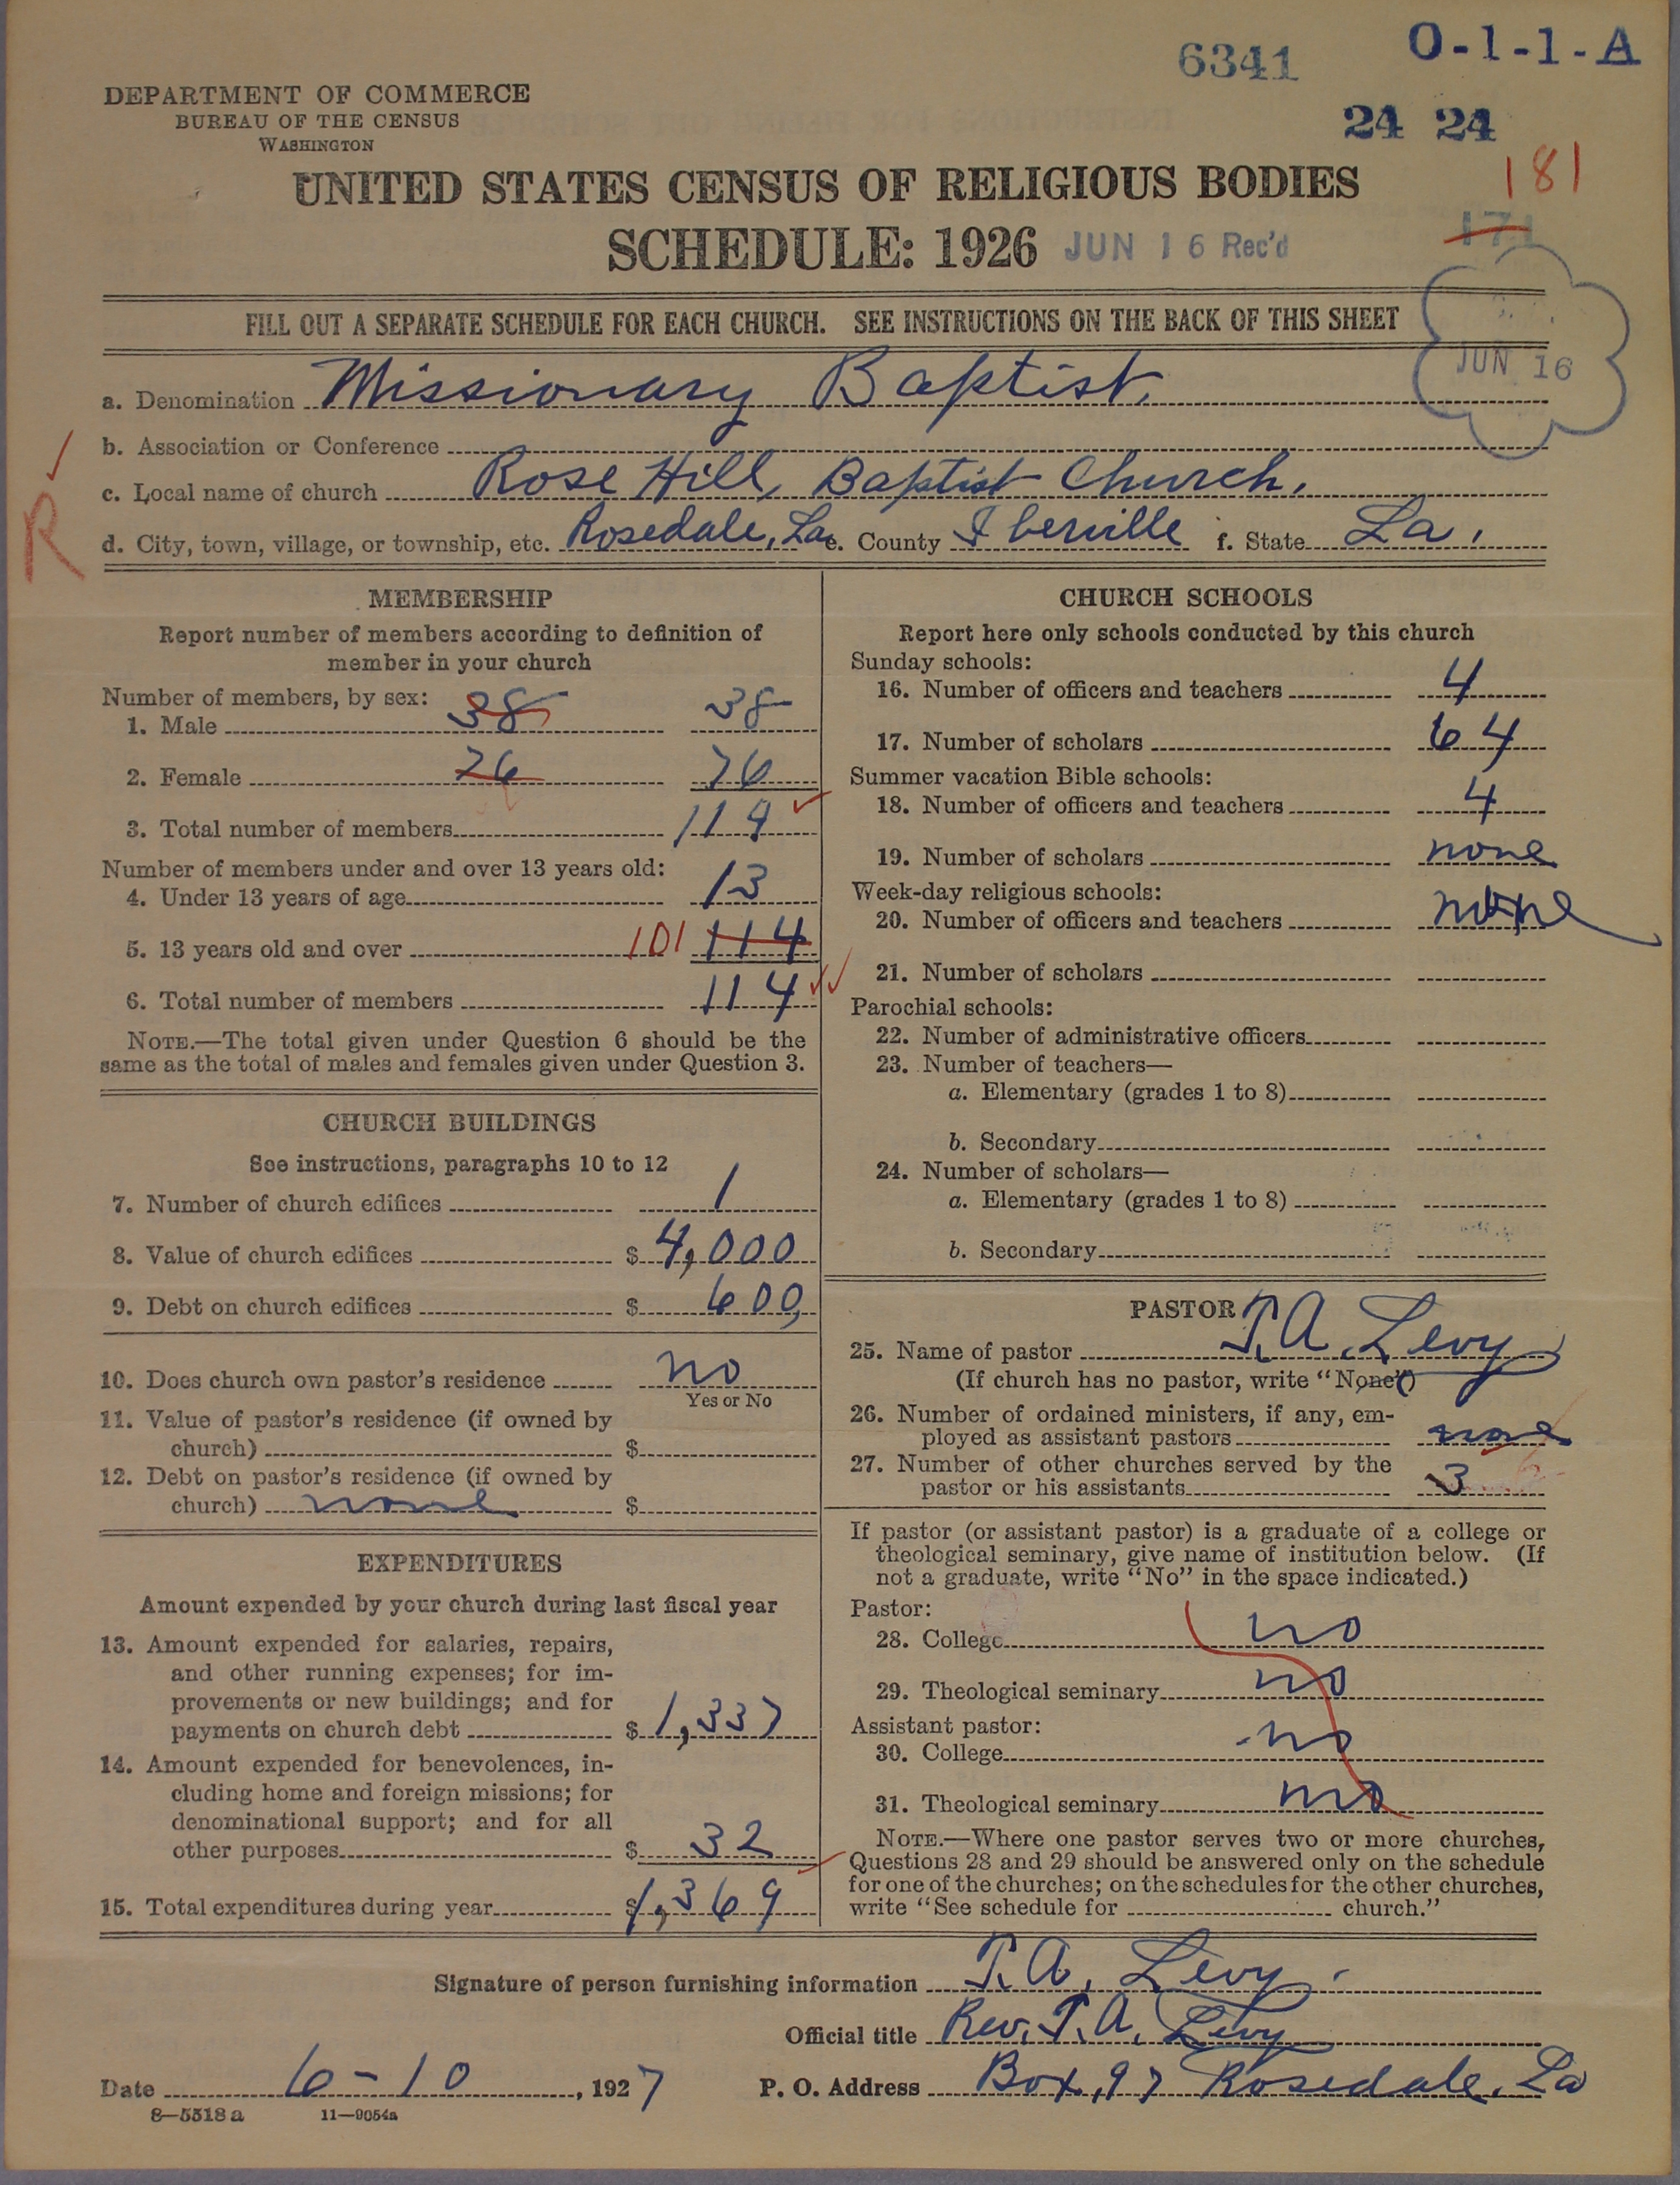 6341 O-1-1-A
24 24
DEPARTMENT OF COMMERCE
BUREAU OF THE CENSUS
WASHINGTON
181
UNITED STATES CENSUS OF RELIGIOUS BODIES
171
SCHEDULE: 1926 JUN 16 Rec'd
FILL OUT A SEPARATE SCHEDULE FOR EACH CHURCH. SEE INSTRUCTIONS ON THE BACK OF THIS SHEET
JUN 16
a. Denomination Missionary Baptist
b. Association or Conference
c. Local name of church Rose Hill, Baptist Church.
d. City, town, village, or township, etc. Rosedale, La. e. County Iberville f. State La.
R
MEMBERSHIP
Report number of members according to definition of
member in your church
Number of members, by sex:
1. Male 38 38
2. Female 76 76
3. Total number of members 114
Number of members under and over 13 years old:
4. Under 13 years of age 13
5. 13 years old and over 101 114
6. Total number of members 114
NOTE.—The total given under Question 6 should be the
same as the total of males and females given under Question 3.
CHURCH BUILDINGS
See instructions, paragraphs 10 to 12
7. Number of church edifices 1
8. Value of church edifices $ 4,000
9. Debt on church edifices $ 600,
10. Does church own pastor's residence no
Yes or No
11. Value of pastor's residence (if owned by
church) $
12. Debt on pastor's residence (if owned by
church) none $
EXPENDITURES
Amount expended by your church during last fiscal year
13. Amount expended for salaries, repairs,
and other running expenses; for im-
provements or new buildings; and for
payments on church debt $ 1,337
14. Amount expended for benevolences, in-
cluding home and foreign missions; for
denominational support; and for all
other purposes $ 32
15. Total expenditures during year $ 1,369
CHURCH SCHOOLS
Report here only schools conducted by this church
Sunday schools:
16. Number of officers and teachers 4
17. Number of scholars 64
Summer vacation Bible schools:
18. Number of officers and teachers 4
19. Number of scholars none
Week-day religious schools:
20. Number of officers and teachers none
21. Number of scholars
Parochial schools:
22. Number of administrative officers
23. Number of teachers—
a. Elementary (grades 1 to 8)
b. Secondary
24. Number of scholars—
a. Elementary (grades 1 to 8)
b. Secondary
PASTOR
25. Name of pastor T. A. Levy
(If church has no pastor, write "None")
26. Number of ordained ministers, if any, em-
ployed as assistant pastors none
27. Number of other churches served by the
pastor or his assistants 3
If pastor (or assistant pastor) is a graduate of a college or
theological seminary, give name of institution below. (If
not a graduate, write "No" in the space indicated.)
Pastor:
28. College no
29. Theological seminary no
Assistant pastor:
30. College no
31. Theological seminary no
NOTE.—Where one pastor serves two or more churches,
Questions 28 and 29 should be answered only on the schedule
for one of the churches; on the schedules for the other churches,
write "See schedule for church."
Signature of person furnishing information T. A. Levy.
Official title Rev. T. A. Levy
Date 6-10, 1927 P. O. Address Box, 97 Rosedale, La
8—5518a 11—9054a